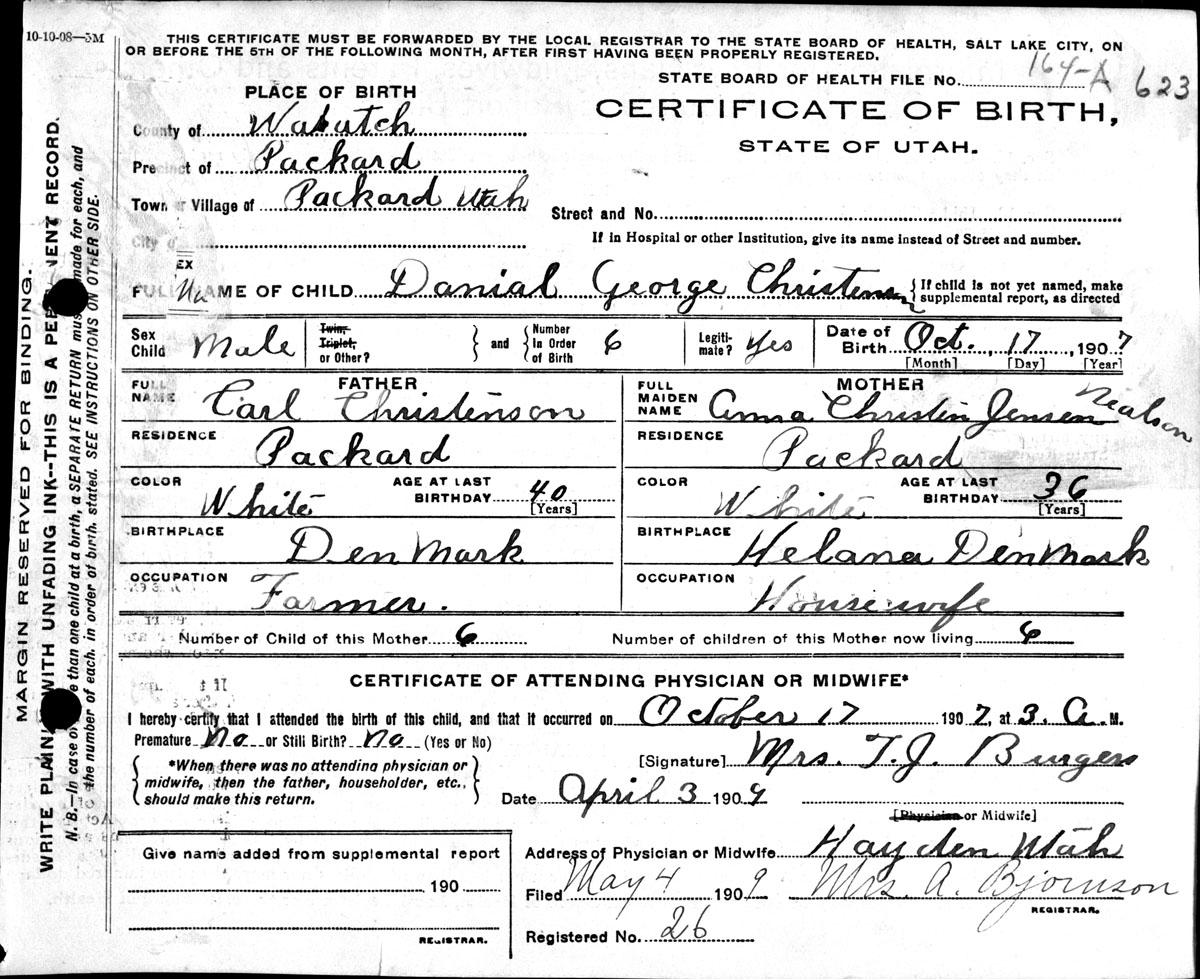 10-10-08—3M
THIS CERTIFICATE MUST BE FORWARDED BY THE LOCAL REGISTRAR TO THE STATE BOARD OF HEALTH, SALT LAKE CITY, ON
OR BEFORE THE 5TH OF THE FOLLOWING MONTH, AFTER FIRST HAVING BEEN PROPERLY REGISTERED.
STATE BOARD OF HEALTH FILE NO. 164-A 623
PLACE OF BIRTH
CERTIFICATE OF BIRTH,
STATE OF UTAH.
County of Wabutch
Precinct of Packard
Town or Village of Packard Utah
Street and No.
City of
If in Hospital or other Institution, give its name instead of Street and number.
EX
FULL NAME OF CHILD Danial George Christensen
{If child is not yet named, make
supplemental report, as directed
Sex
Child Male
Twin,
Triplet,
or Other?
} and {
Number
In Order
of Birth 6
Legiti-
mate? Yes
Date of
Birth Oct., 17, 1907
[Month] [Day] [Year]
FATHER
FULL
NAME Carl Christenson
RESIDENCE
Packard
COLOR White
AGE AT LAST
BIRTHDAY 40
[Years]
BIRTHPLACE
Den Mark
OCCUPATION
Farmer.
MOTHER
FULL
MAIDEN
NAME Anna Christin Jensen Nealson
RESIDENCE
Packard
COLOR White
AGE AT LAST
BIRTHDAY 36
[Years]
BIRTHPLACE
Helana Den Mark
OCCUPATION
Housewife
Number of Child of this Mother 6
Number of children of this Mother now living 6
CERTIFICATE OF ATTENDING PHYSICIAN OR MIDWIFE*
I hereby certify that I attended the birth of this child, and that it occurred on October 17 1907, at 3. A. M.
Premature No or Still Birth? No (Yes or No)
{*When there was no attending physician or
midwife, then the father, householder, etc.,
should make this return.}
[Signature] Mrs. T.J. Burgess
Date April 3 1909
[Physician or Midwife]
Give name added from supplemental report
190
REGISTRAR.
Address of Physician or Midwife Hayden Utah
Filed May 4 1909 Mrs. A. Bjornson
REGISTRAR.
Registered No. 26
MARGIN RESERVED FOR BINDING.
WRITE PLAINLY WITH UNFADING INK--THIS IS A PERMANENT RECORD.
N. B.—In case of more than one child at a birth, a SEPARATE RETURN must be made for each, and
the number of each, in order of birth, stated. SEE INSTRUCTIONS ON OTHER SIDE.